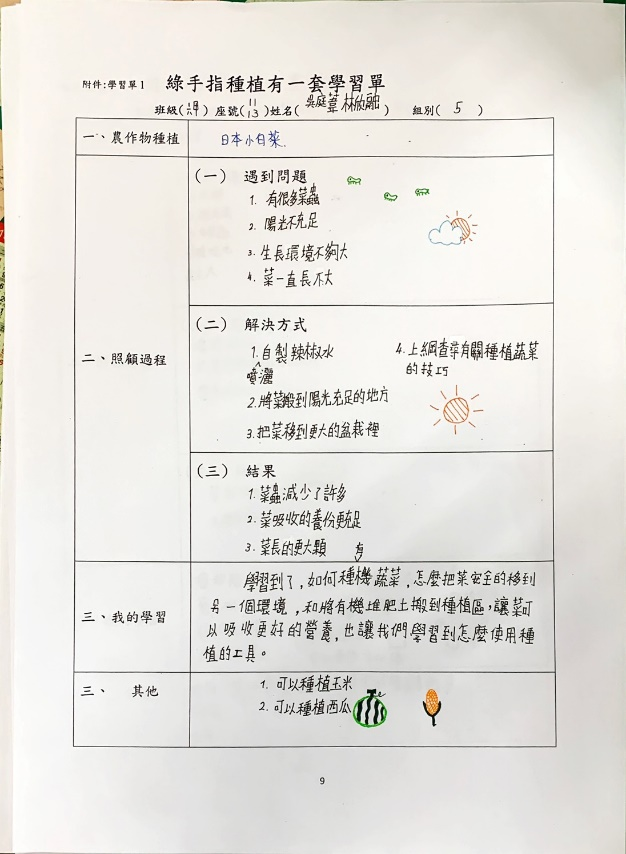 附件:學習單1 綠手指種植有一套學習單
班級( ) 座號(11 13)姓名(吳庭葦 林欣融) 組別( 5 )
一、農作物種植 日本小白菜
(一) 遇到問題
1. 有很多菜蟲
2. 陽光不充足
3. 生長環境不夠大
4. 菜一直長不大
二、照顧過程
(二) 解決方式
1. 自製辣椒水
噴灑
2. 將菜搬到陽光充足的地方
3. 把菜移到更大的盆栽裡
4. 上網查詢有關種植蔬菜
的技巧
(三) 結果
1. 菜蟲減少了許多
2. 菜吸收的養份更充足
3. 菜長的更大顆
三、我的學習
學習到了,如何種有機蔬菜,怎麼把菜安全的移到
另一個環境,和將有機堆肥土搬到種植區,讓菜可
以吸收更好的營養,也讓我們學習到怎麼使用種
植的工具。
三、 其他
1. 可以種植玉米
2. 可以種植西瓜
9